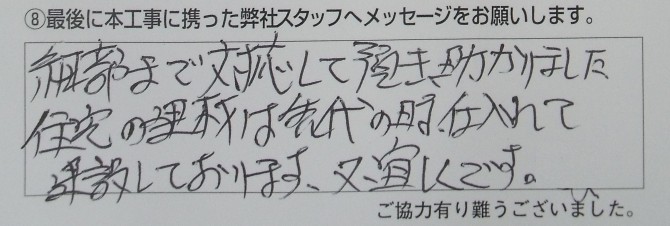 ⑧最後に本工事に携った弊社スタッフへメッセージをお願いします。
細部まで対応して頂き助かりました
住宅の建材は先代の時、仕入れて
建設しております、又、宜しくです。
ご協力有り難うございました。